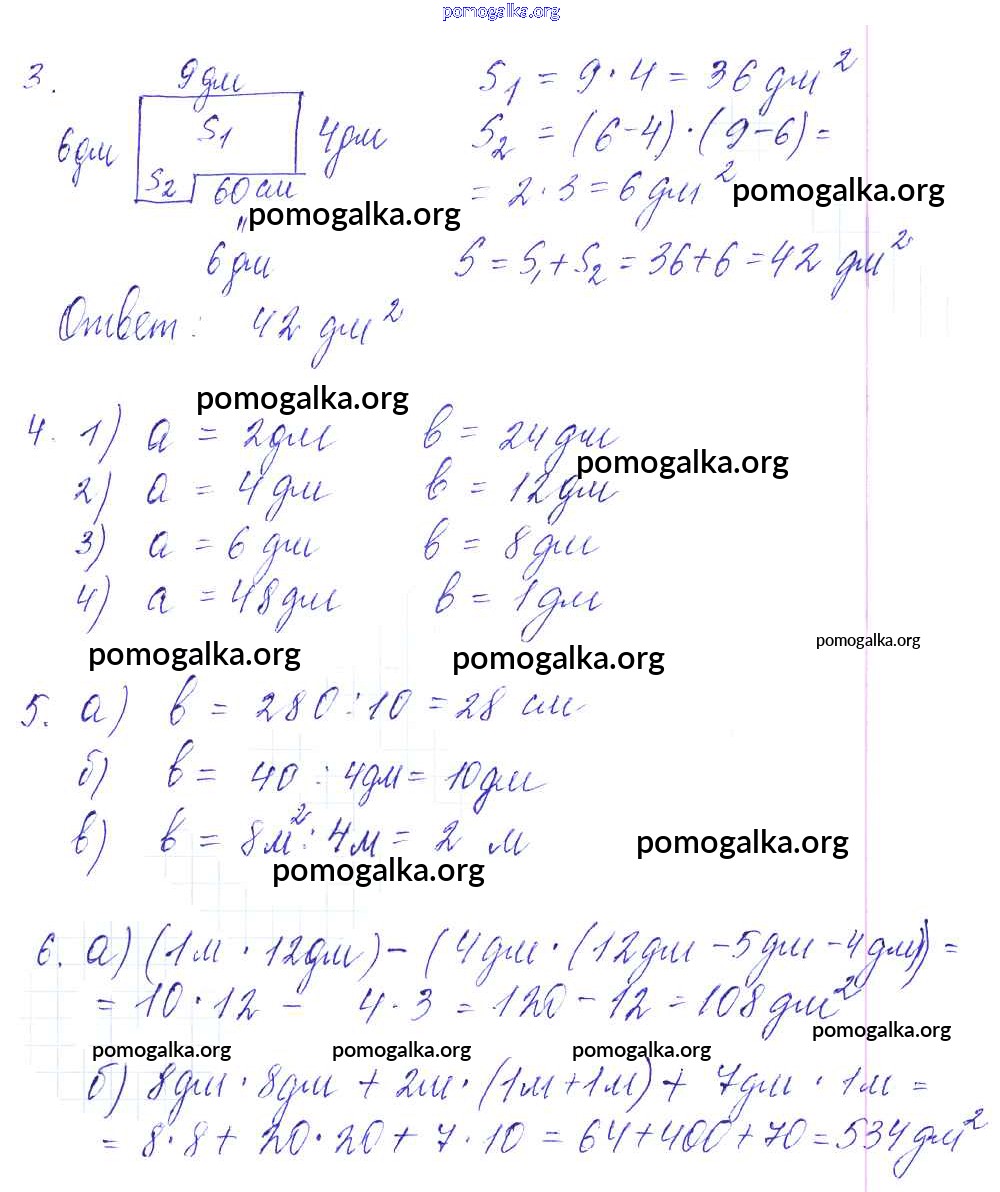 pomogalka.org
3.
9дм
6дм
S1
4дм
S2
60см
"
6дм
S1 = 9 · 4 = 36 дм²
S2 = (6-4) · (9-6) =
= 2 · 3 = 6 дм²
pomogalka.org
pomogalka.org
S = S1 + S2 = 36 + 6 = 42 дм²
Ответ: 42 дм²
pomogalka.org
4. 1) a = 2дм в = 24дм
pomogalka.org
2) a = 4дм в = 12дм
3) a = 6дм в = 8дм
4) a = 48дм в = 1дм
pomogalka.org
pomogalka.org
pomogalka.org
5. а) в = 280 : 10 = 28 см
б) в = 40 : 4дм = 10дм
в) в = 8м² : 4м = 2 м
pomogalka.org
pomogalka.org
6. а) (1м · 12дм) - (4дм · (12дм - 5дм - 4дм)) =
= 10 · 12 - 4 · 3 = 120 - 12 = 108дм²
pomogalka.org
pomogalka.org
pomogalka.org
pomogalka.org
б) 8дм · 8дм + 2м · (1м + 1м) + 7дм · 1м =
= 8 · 8 + 20 · 20 + 7 · 10 = 64 + 400 + 70 = 534дм²